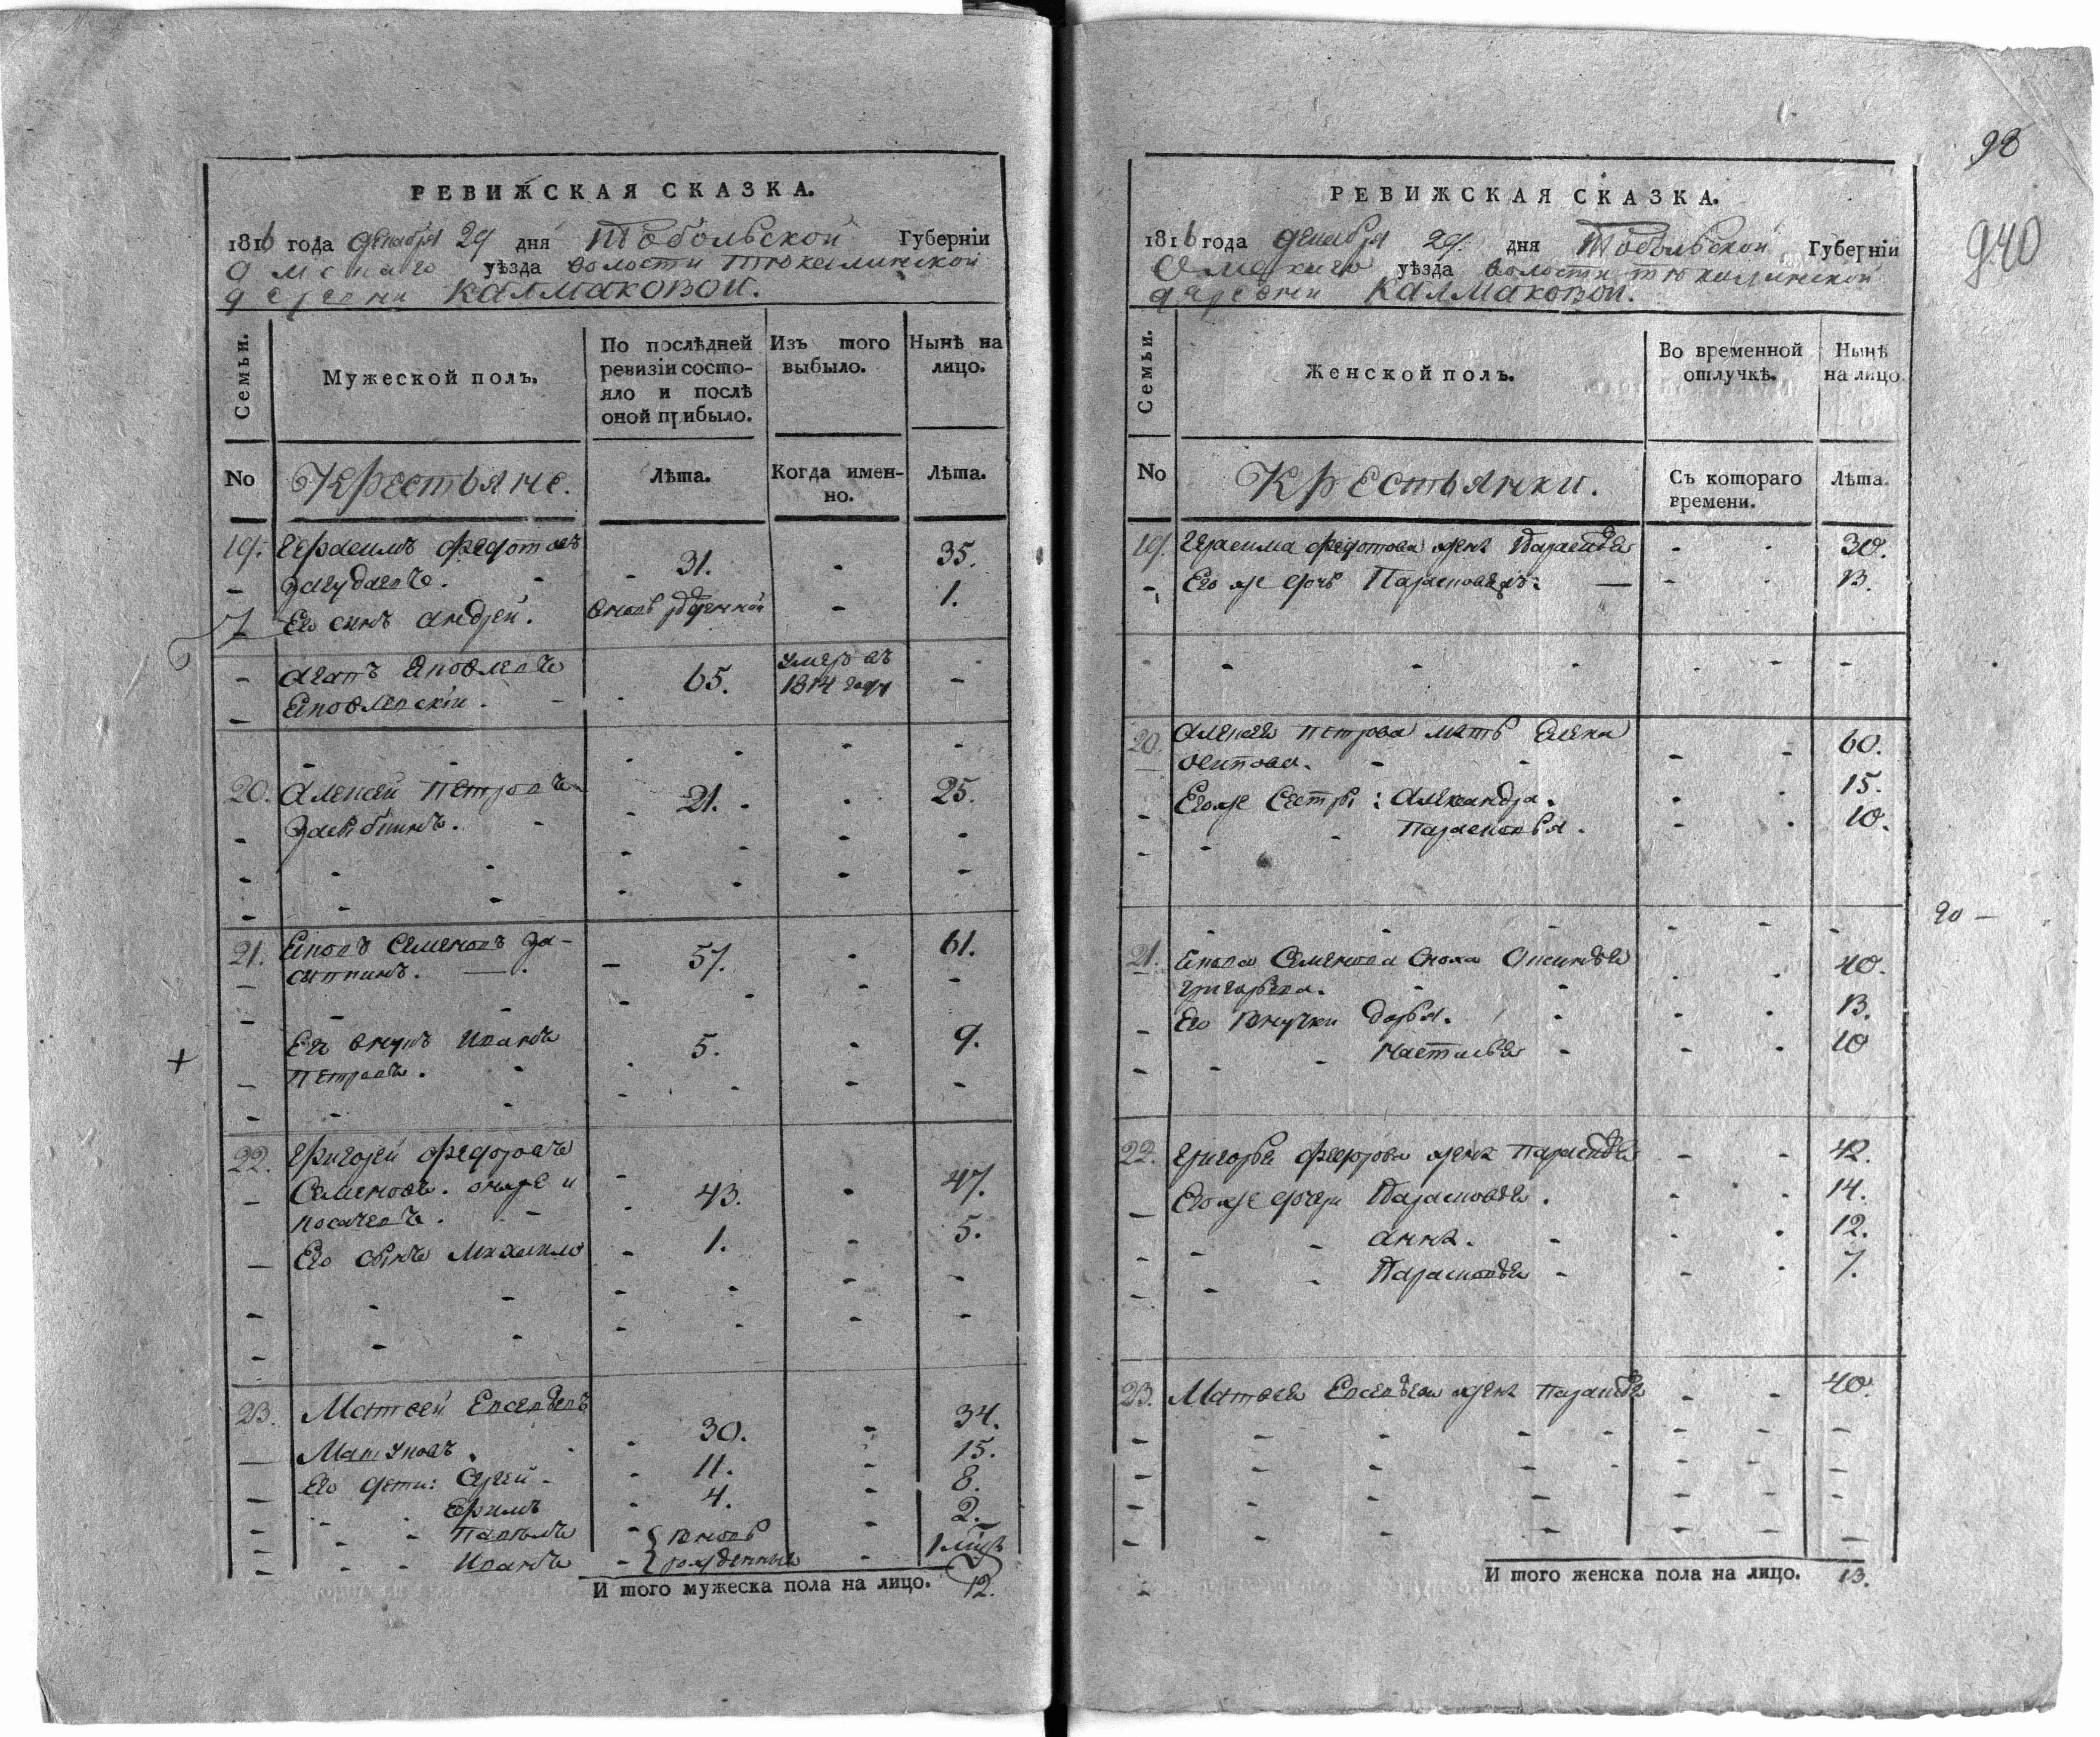 РЕВИЖСКАЯ СКАЗКА.
1816 года декабря 29 дня Тобольской Губерніи
Омскаго уѣзда волости тюкалинской
деревни Калмаковой.
Семьи.
Мужеской полъ.
По послѣдней ревизіи состо-
яло и послѣ
оной прибыло.
Изъ того
выбыло.
Нынѣ на
лицо.
No
Крестьяне.
Лѣта.
Когда имен-
но.
Лѣта.
19. Герасимъ Федотовъ 31. 35.
Его сынъ андрей. вновь рожденной 1.
агапъ Яковлевъ 65. умеръ въ 1814 году
20. Алексей Петровъ 21. 25.
21. Яковъ Семеновъ За- 57. 61.
сыпкинъ.
Его внукъ Иванъ 5. 9.
Петровъ.
22. Григорей Федоровъ
Семеновъ. онже и 43. 47.
Его сынъ Михаило 1. 5.
23. Матвей
30. 34.
Его дети: Сергей 11. 15.
Ефимъ 4. 8.
Павелъ вновь 2.
Иванъ рожденныя
И того мужеска пола на лицо. 12.
98
940
РЕВИЖСКАЯ СКАЗКА.
1816 года декабря 29. дня Тобольской Губерніи
Омскаго уѣзда волости тюкалинской
деревни Калмаковой.
Семьи.
Женской полъ.
Во временной
отлучкѣ.
Нынѣ
на лицо
No
Крестьянки.
Съ котораго
времени.
Лѣта.
19. Герасима Федотова жена 30.
Его же дочь Парасковья 13.
20. Алексея Петрова мать Елена 60.
осипова.
Его же Сестры: Александра. 15.
Парасковья. 10.
20 —
21. Якова Семенова сноха 40.
григорьева.
Его внучки Дарья. 13.
Настасья 10
22. Григорья Федорова жена 42.
Его же дочери Парасковья. 14.
анна. 12.
Парасковья 7.
23. Матвея жена 40.
И того женска пола на лицо. 13.